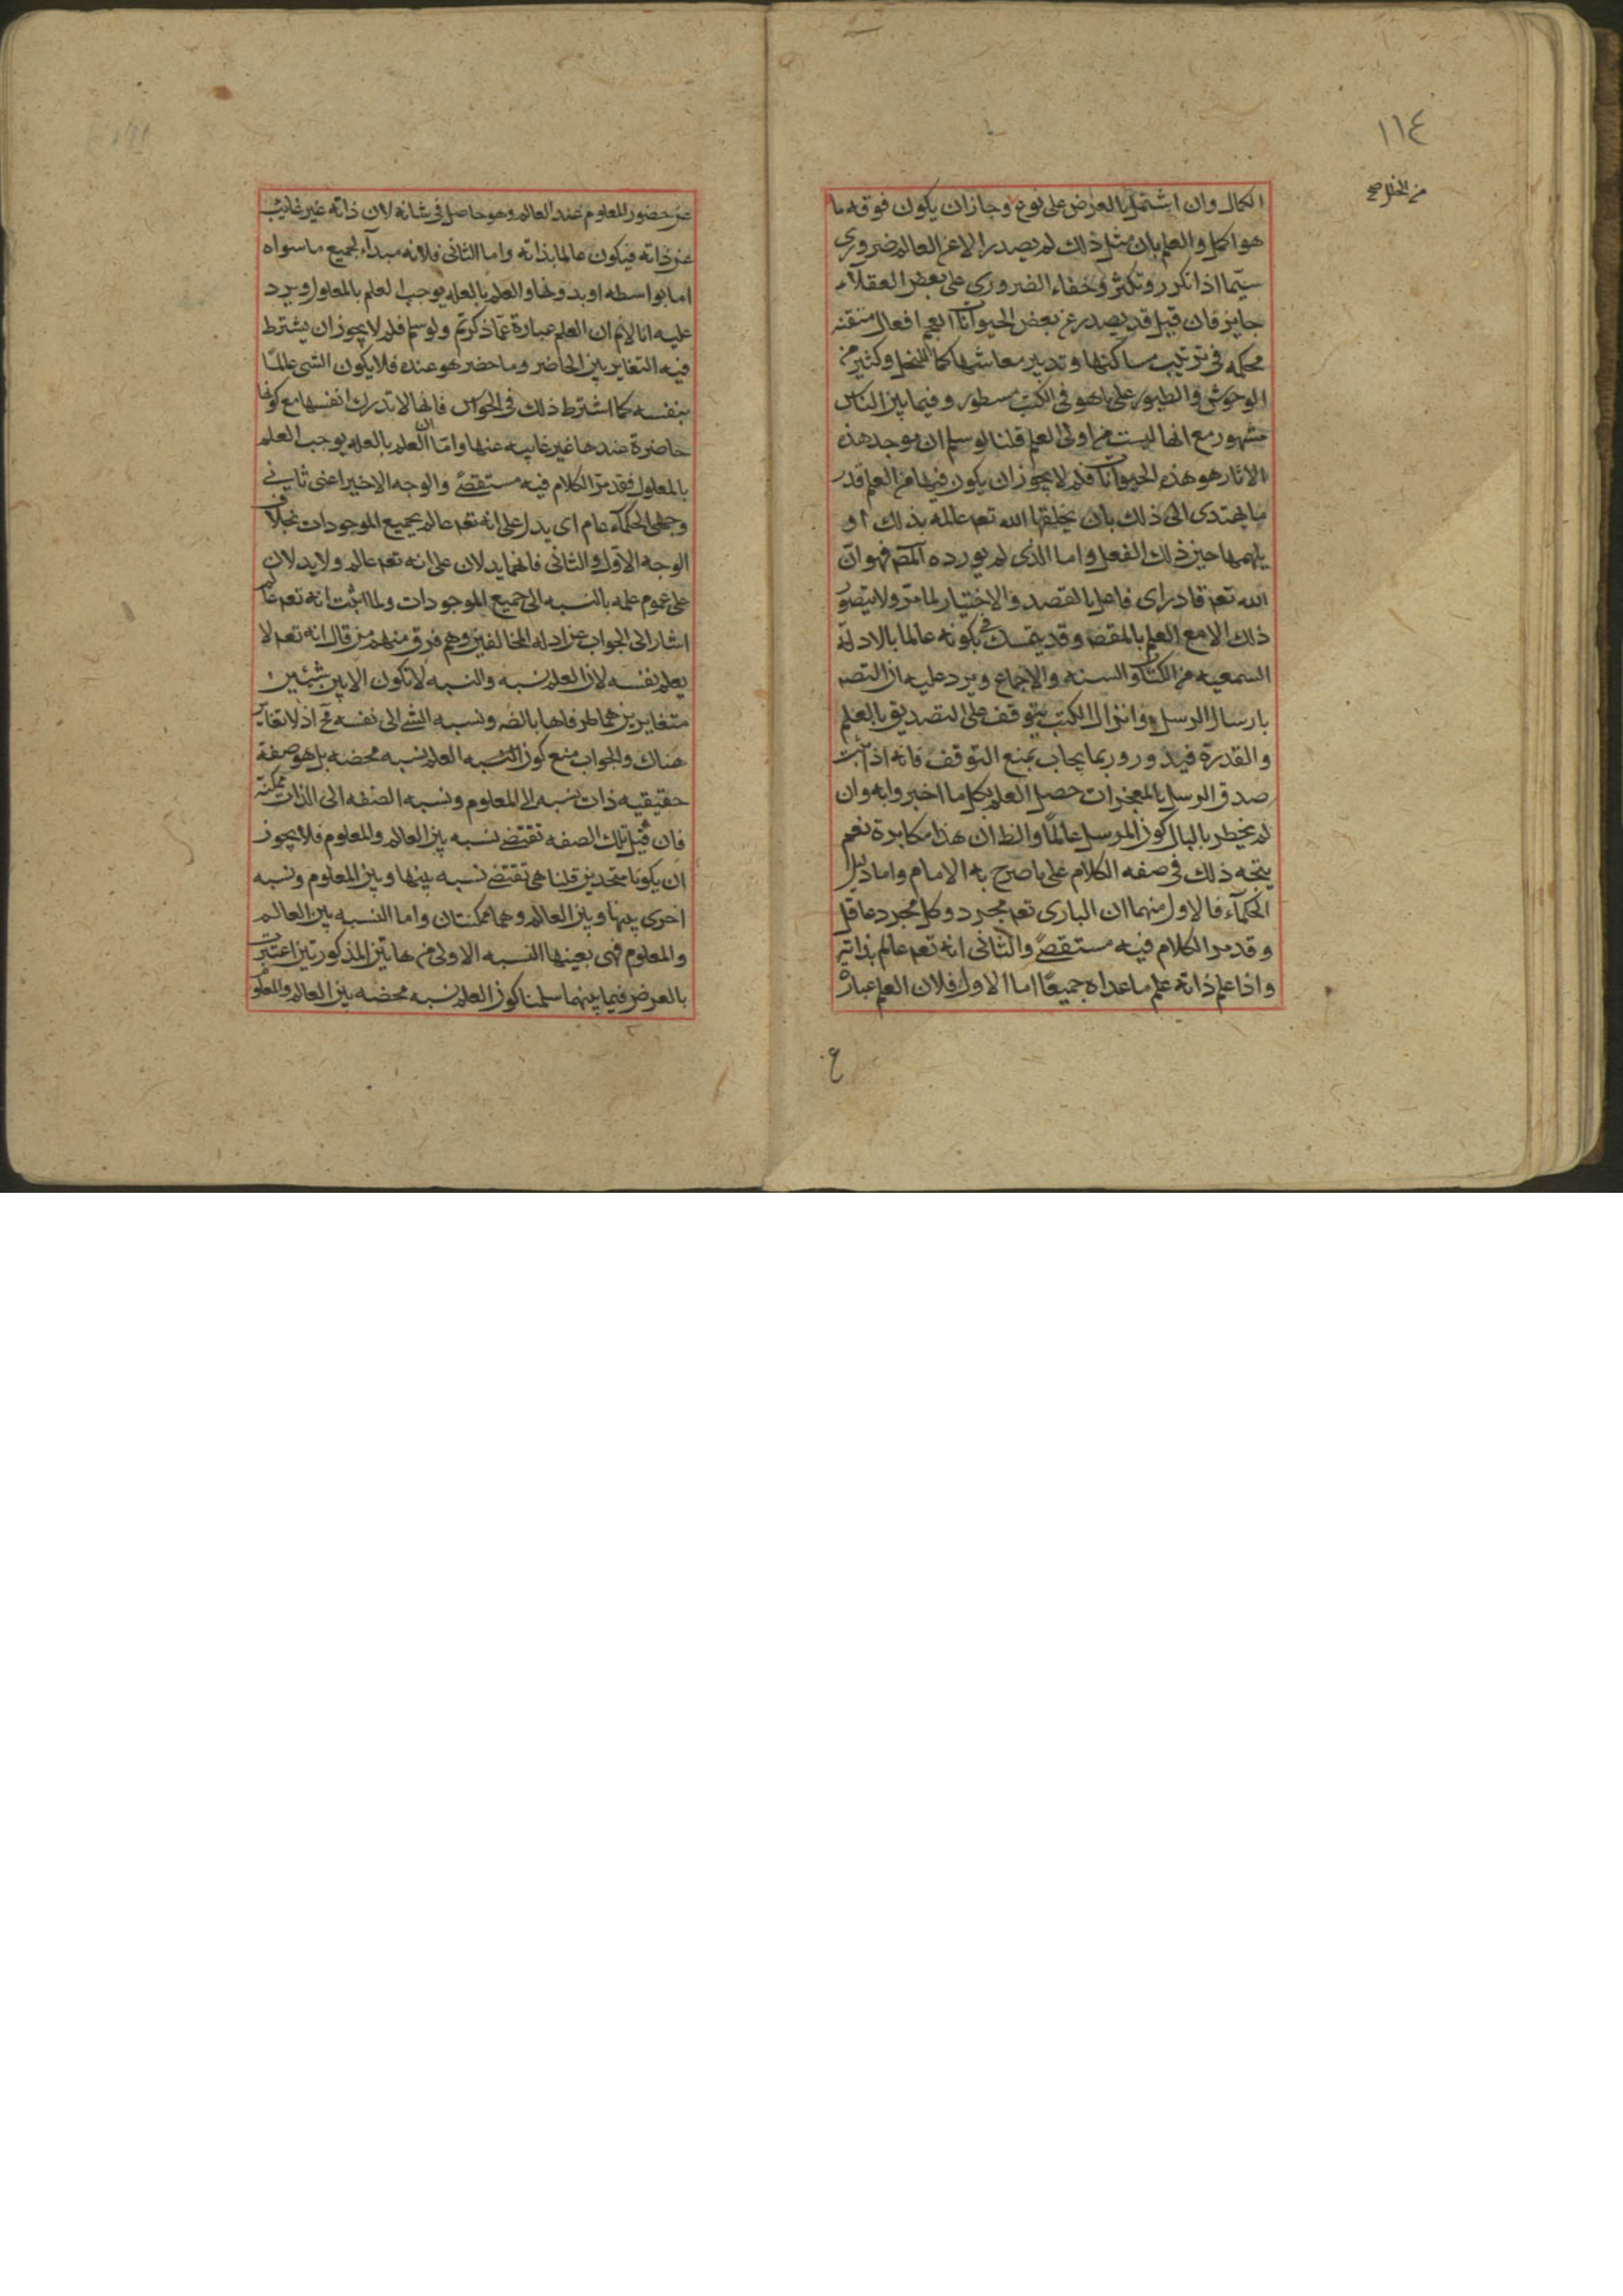 ١١٤
من الخلل صح
الكمال وان اشتمل بالعرض على نوع وجاز ان يكون فوقه ما
هو اكمل والعلم بان مثل ذلك لم يصدر الا عن العالم ضروري
سيّما اذا تكرر وتكثر وخفاء الضروري على بعض العقلاء
جايز فان قيل قد يصدر عن بعض الحيوانات العجم افعال متقنه
محكمه في ترتيب مساكنها وتدبير معاشها كما للنحل وكثير من
الوحوش والطيور على ما هو في الكتب مسطور وفيما بين الناس
مشهور مع انها ليست من اولى العلم قلنا لو سلم ان موجد هذه
الاثار هو هذه الحيوانات فلم لا يجوز ان يكون فيها من العلم قدر
ما يهتدى الى ذلك بان يخلقها الله تعم عالمه بذلك او
يلهمها حين ذلك الفعل واما الذى لم يورده المص فهو ان
الله تعم قادر اى فاعل بالقصد والاختيار لما مرّ ولا يتصوّر
ذلك الا مع العلم بالمقص وقد يتمسك في كونه عالما بالادلة
السمعيه من الكتاب والسنه والاجماع ويرد عليه ان التصد
بارسال الرسل وانزال الكتب يتوقف على التصديق بالعلم
والقدرة فيدور وربما يجاب بمنع التوقف فانه اذا ثبت
صدق الرسل بالمعجزات حصل العلم بكل ما اخبروا به وان
لم يخطر بالبال كون المرسل عالمًا والظ ان هذا مكابرة نعم
يتجه ذلك في صفه الكلام على ما صرح به الامام واما دليلا
الحكمآء فالاول منهما ان البارى تعم مجرد وكل مجرد عاقل
وقد مر الكلام فيه مستقصىً والثانى انه تعم عالم بذاته
واذا علم ذاته علم ما عداه جميعًا اما الاول فلان العلم عبارة
ع
عن حضور المعلوم عند العالم وهو حاصل في شانه لان ذاته غير غائب
عن ذاته فيكون عالما بذاته واما الثانى فلانه مبدأ لجميع ما سواه
اما بواسطه او بدونها والعلم بالعله يوجب العلم بالمعلول ويرد
عليه انا لا نم ان العلم عبارة عمّا ذكرتم ولو سلم فلم لا يجوز ان يشترط
فيه التغاير بين الحاضر وما حضر هو عنده فلا يكون الشى عالمًا
بنفسه كما اشترط ذلك في الحواس فانها لا تدرك انفسها مع كونها
حاضرة عندها غير غايبه عنها وامّا ان العلم بالعله يوجب العلم
بالمعلول فقد مرّ الكلام فيه مستقصىً والوجه الاخير اعنى ثانى
وجهى الحكمآء عام اى يدل على انه تعم عالم بجميع الموجودات بخلاف
الوجه الاول والثانى فانهما يدلان على انه تعم عالم ولا يدلان
على عموم علمه بالنسبه الى جميع الموجودات ولما اثبت انه تعم عالم
اشار الى الجواب عن ادله المخالفين وهم فرق منهم من قال انه تعم لا
يعلم نفسه لان العلم نسبه والنسبه لا تكون الا بين شيئين
متغايرين هما طرفاها بالضه ونسبه الشى الى نفسه مح اذ لا تغاير
هناك والجواب منع كون العلم نسبه محضه بل هو صفة
حقيقيه ذات نسبه الى المعلوم ونسبه الصفه الى الذات ممكنه
فان قيل تلك الصفه تقتضى نسبه بين العالم والمعلوم فلا يجوز
ان يكونا متحدين قلنا هى تقتضى نسبه بينها وبين المعلوم ونسبه
اخرى بينها وبين العالم وهما ممكنتان واما النسبه بين العالم
والمعلوم فهى بعينها النسبه الاولى من هاتين المذكورتين اعتبرت
بالعرض فيما بينهما سلمنا كون العلم نسبه محضه بين العالم والمعلو